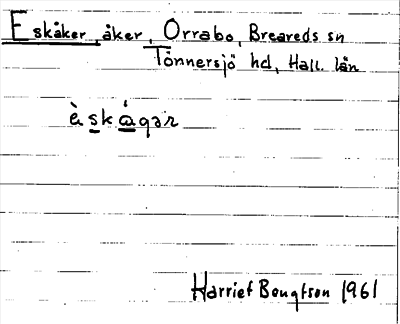 Eskåker åker, Orrabo, Breareds sn
Tönnersjö hd, Hall. län
è s k ǻ g ə r
Harriet Bengtson 1961